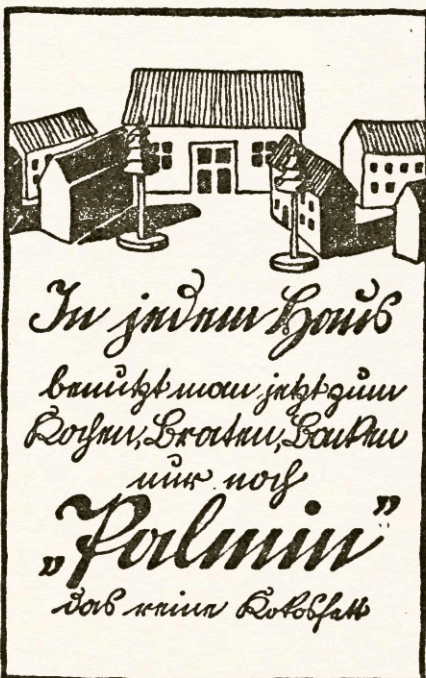 In jedem Haus
benutzt man jetzt zum
Kochen, Braten, Backen
nur noch
„Palmin”
das reine Kokosfett